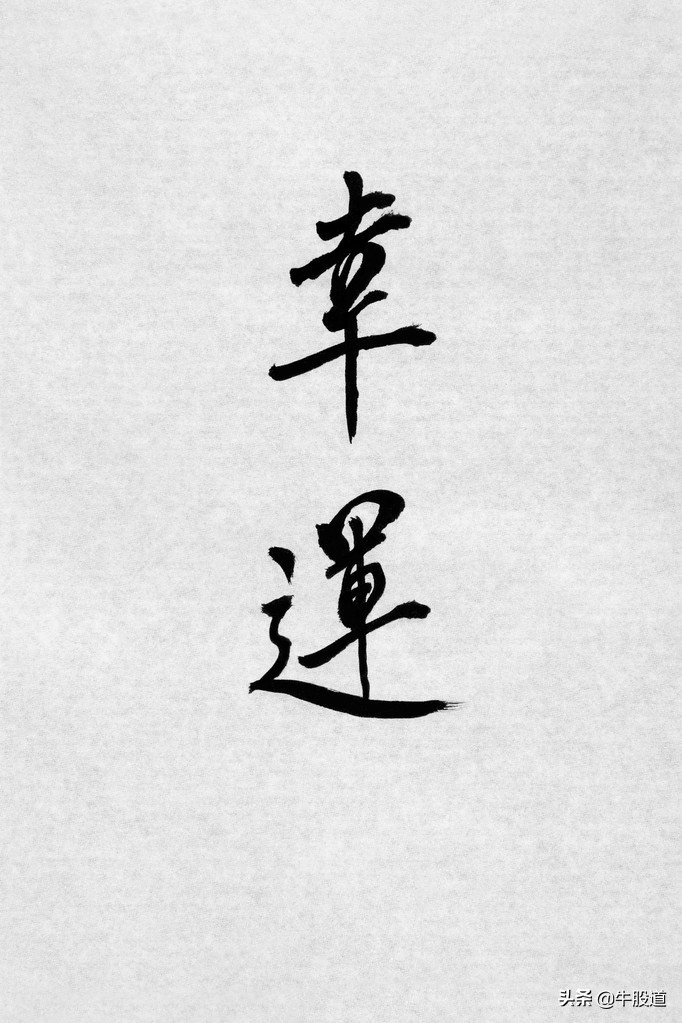 幸
運
头条 @牛股道